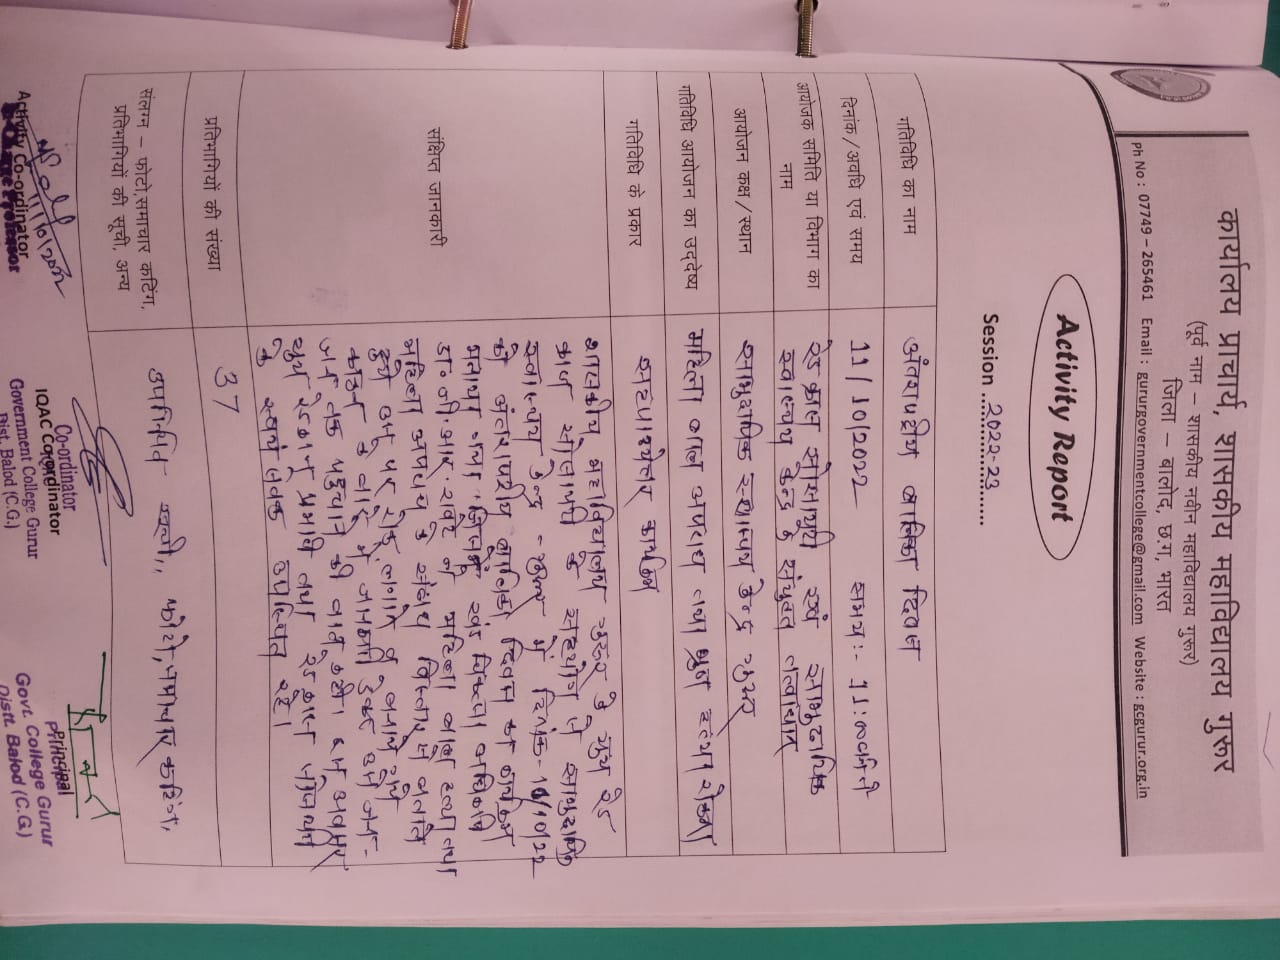 कार्यालय प्राचार्य, शासकीय महाविद्यालय गुरूर
(पूर्व नाम – शासकीय नवीन महाविद्यालय गुरूर)
जिला – बालोद, छ.ग., भारत
Ph No : 07749 – 265461 Email : gururgovernmentcollege@gmail.com Website : gcgurur.org.in
Activity Report
Session ...2022-23...
गतिविधि का नाम
अंतराष्ट्रीय बालिका दिवस
दिनांक/अवधि एवं समय
11/10/2022 समय:- 11:00
आयोजक समिति या विभाग का नाम
रेड क्रास सोसायटी एवं सामुदायिक
स्वास्थ्य केन्द्र के संयुक्त तत्वाधान
आयोजन कक्ष/स्थान
सामुदायिक स्वास्थ्य केन्द्र गुरूर
गतिविधि आयोजन का उद्देष्य
महिला बाल अपराध तथा भ्रूण हत्या रोकना
गतिविधि के प्रकार
कार्यक्रम
संक्षिप्त जानकारी
शासकीय महाविद्यालय गुरूर के यूथ रेड
क्रास सोसायटी के सहयोग से सामुदायिक
स्वास्थ्य केन्द्र गुरूर में दिनांक-11/10/22
को अंतराष्ट्रीय बालिका दिवस का कार्यक्रम
मनाया गया। जिसमें खंड चिकित्सा अधिकारी
डॉ० जी. आर. रावटे ने महिला भ्रूण हत्या तथा
महिला अपराध के संबंध विस्तार से बताते
हुये उन पर रोक लगाने व बनाये गये
कानून के बारे में जानकारी देकर उसे जन-
जन तक पहुचाने की बात कही। इस अवसर
यूथ रेडक्रास प्रभारी तथा रेडक्रास सोसायटी
के स्वयं सेवक उपस्थित रहे।
प्रतिभागियों की संख्या
37
संलग्न – फोटो,समाचार कटिंग,
प्रतिभागियों की सूची, अन्य
उपस्थिति सूची, फोटो, समाचार कटिंग,
11/10/2022
Activity Co-ordinator
Co-ordinator
IQAC Co-ordinator
Government College Gurur
Dist. Balod (C.G.)
Principal
Govt. College Gurur
Distt. Balod (C.G.)